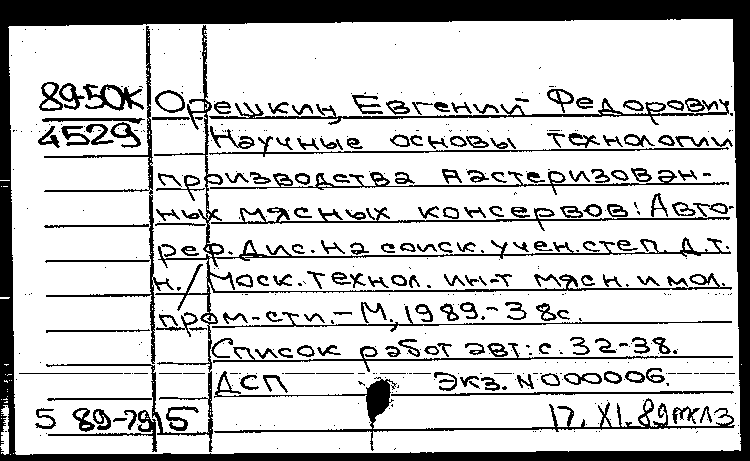 89-50К Орешкин, Евгений Федорович
4529 Научные основы технологии
производства пастеризован-
ных мясных консервов: Авто-
реф. Дис. на соиск. учен. степ. д.т.
н. / Моск. технол. ин-т мясн. и мол.
пром-сти. - М, 1989. - 38с.
Список работ авт: с. 32-38.
ДСП Экз. N 000006.
5 89-7915 17. XI. 89